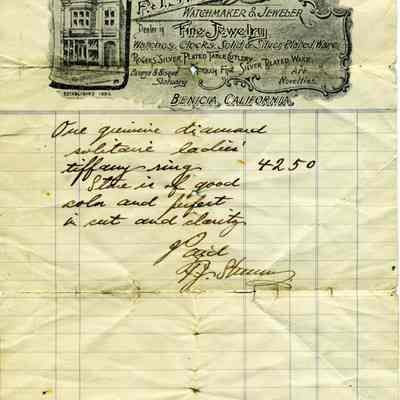 WATCHMAKER & JEWELER
Dealer in Fine Jewelry
Watches, Clocks, Solid & Silver Plated Ware,
Rogers Silver Plated Table Cutlery
Bronze & Bisque Statuary
Silver Plated Ware
Art Novelties.
ESTABLISHED
BENICIA, CALIFORNIA,
One genuine diamond
solitaire ladies'
tiffany ring 42 50
Stone is of good
color and perfect
in cut and clarity
Paid